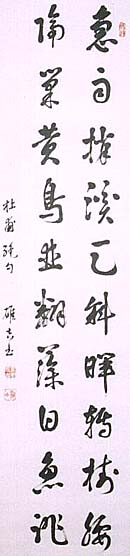 急雨捎溪足斜暉轉樹腰
隔巢黃鳥並翻藻白魚跳
杜甫絕句